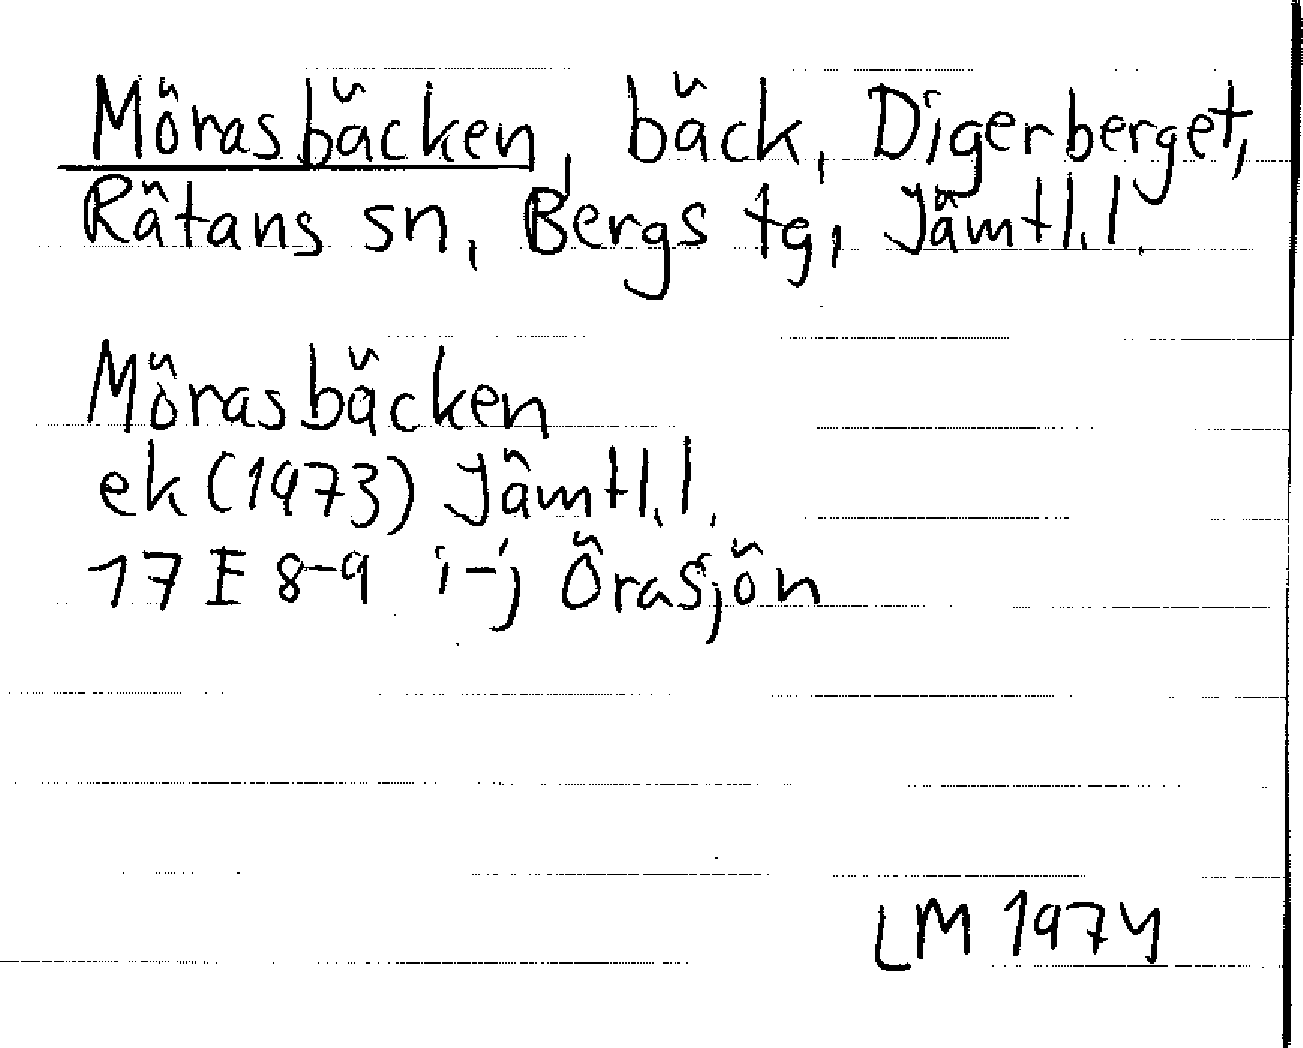 Mörasbäcken, bäck, Digerberget,
Rätans sn, Bergs tg, Jämtl. l.
Mörasbäcken
ek (1973) Jämtl. l.
17 E 8-9 i-j Örasjön
LM 1974